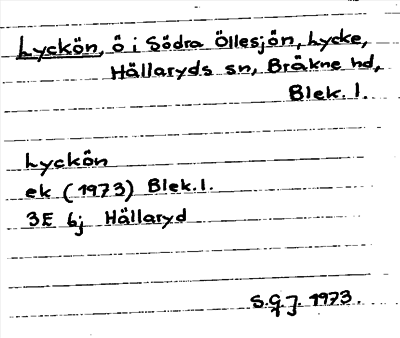 Lyckön, ö i Södra Öllesjön, Lycke,
Hällaryds sn, Bräkne hd,
Blek. l.
Lyckön
ek (1973) Blek. l.
3E 6j Hällaryd
S.G.J. 1973.